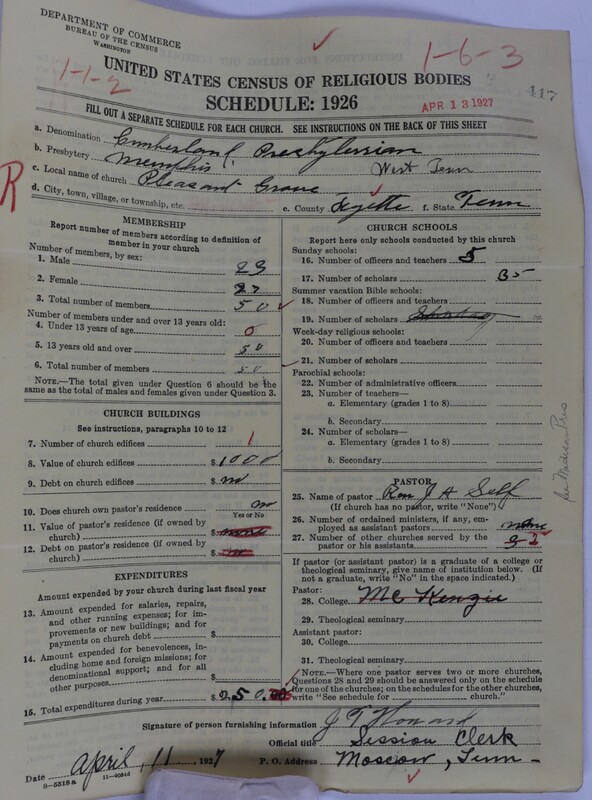 DEPARTMENT OF COMMERCE
BUREAU OF THE CENSUS
WASHINGTON
1-1-2
1-6-3
UNITED STATES CENSUS OF RELIGIOUS BODIES
SCHEDULE: 1926
APR 13 1927
417
FILL OUT A SEPARATE SCHEDULE FOR EACH CHURCH. SEE INSTRUCTIONS ON THE BACK OF THIS SHEET
a. Denomination Cumberland Presbyterian
b. Presbytery Memphis West Tenn
c. Local name of church Pleasant Grove
d. City, town, village, or township, etc. e. County Fyette f. State Tenn
R
MEMBERSHIP
Report number of members according to definition of
member in your church
Number of members, by sex:
1. Male 23
2. Female 27
3. Total number of members 50
Number of members under and over 13 years old:
4. Under 13 years of age 0
5. 13 years old and over 50
6. Total number of members 50
NOTE.—The total given under Question 6 should be the
same as the total of males and females given under Question 3.
CHURCH BUILDINGS
See instructions, paragraphs 10 to 12
7. Number of church edifices 1
8. Value of church edifices $1000
9. Debt on church edifices $no
10. Does church own pastor's residence no
Yes or No
11. Value of pastor's residence (if owned by
church) $none
12. Debt on pastor's residence (if owned by
church) $no
EXPENDITURES
Amount expended by your church during last fiscal year
13. Amount expended for salaries, repairs,
and other running expenses; for im-
provements or new buildings; and for
payments on church debt $
14. Amount expended for benevolences, in-
cluding home and foreign missions; for
denominational support; and for all
other purposes $
15. Total expenditures during year $250.00
CHURCH SCHOOLS
Report here only schools conducted by this church
Sunday schools:
16. Number of officers and teachers 5
17. Number of scholars 35
Summer vacation Bible schools:
18. Number of officers and teachers
19. Number of scholars
Week-day religious schools:
20. Number of officers and teachers
21. Number of scholars
Parochial schools:
22. Number of administrative officers
23. Number of teachers—
a. Elementary (grades 1 to 8)
b. Secondary
24. Number of scholars—
a. Elementary (grades 1 to 8)
b. Secondary
PASTOR
25. Name of pastor Rev J A Self
(If church has no pastor, write "None")
26. Number of ordained ministers, if any, em-
ployed as assistant pastors none
27. Number of other churches served by the
pastor or his assistants 3 2
If pastor (or assistant pastor) is a graduate of a college or
theological seminary, give name of institution below. (If
not a graduate, write "No" in the space indicated.)
Pastor:
28. College Mc Kenzie
29. Theological seminary
Assistant pastor:
30. College
31. Theological seminary
NOTE.—Where one pastor serves two or more churches,
Questions 28 and 29 should be answered only on the schedule
for one of the churches; on the schedules for the other churches,
write "See schedule for church."
Signature of person furnishing information J T Howard
Official title Session Clerk
Date April, 11, 1927 P. O. Address Moscow, Tenn-
8-5318a 11-4084d